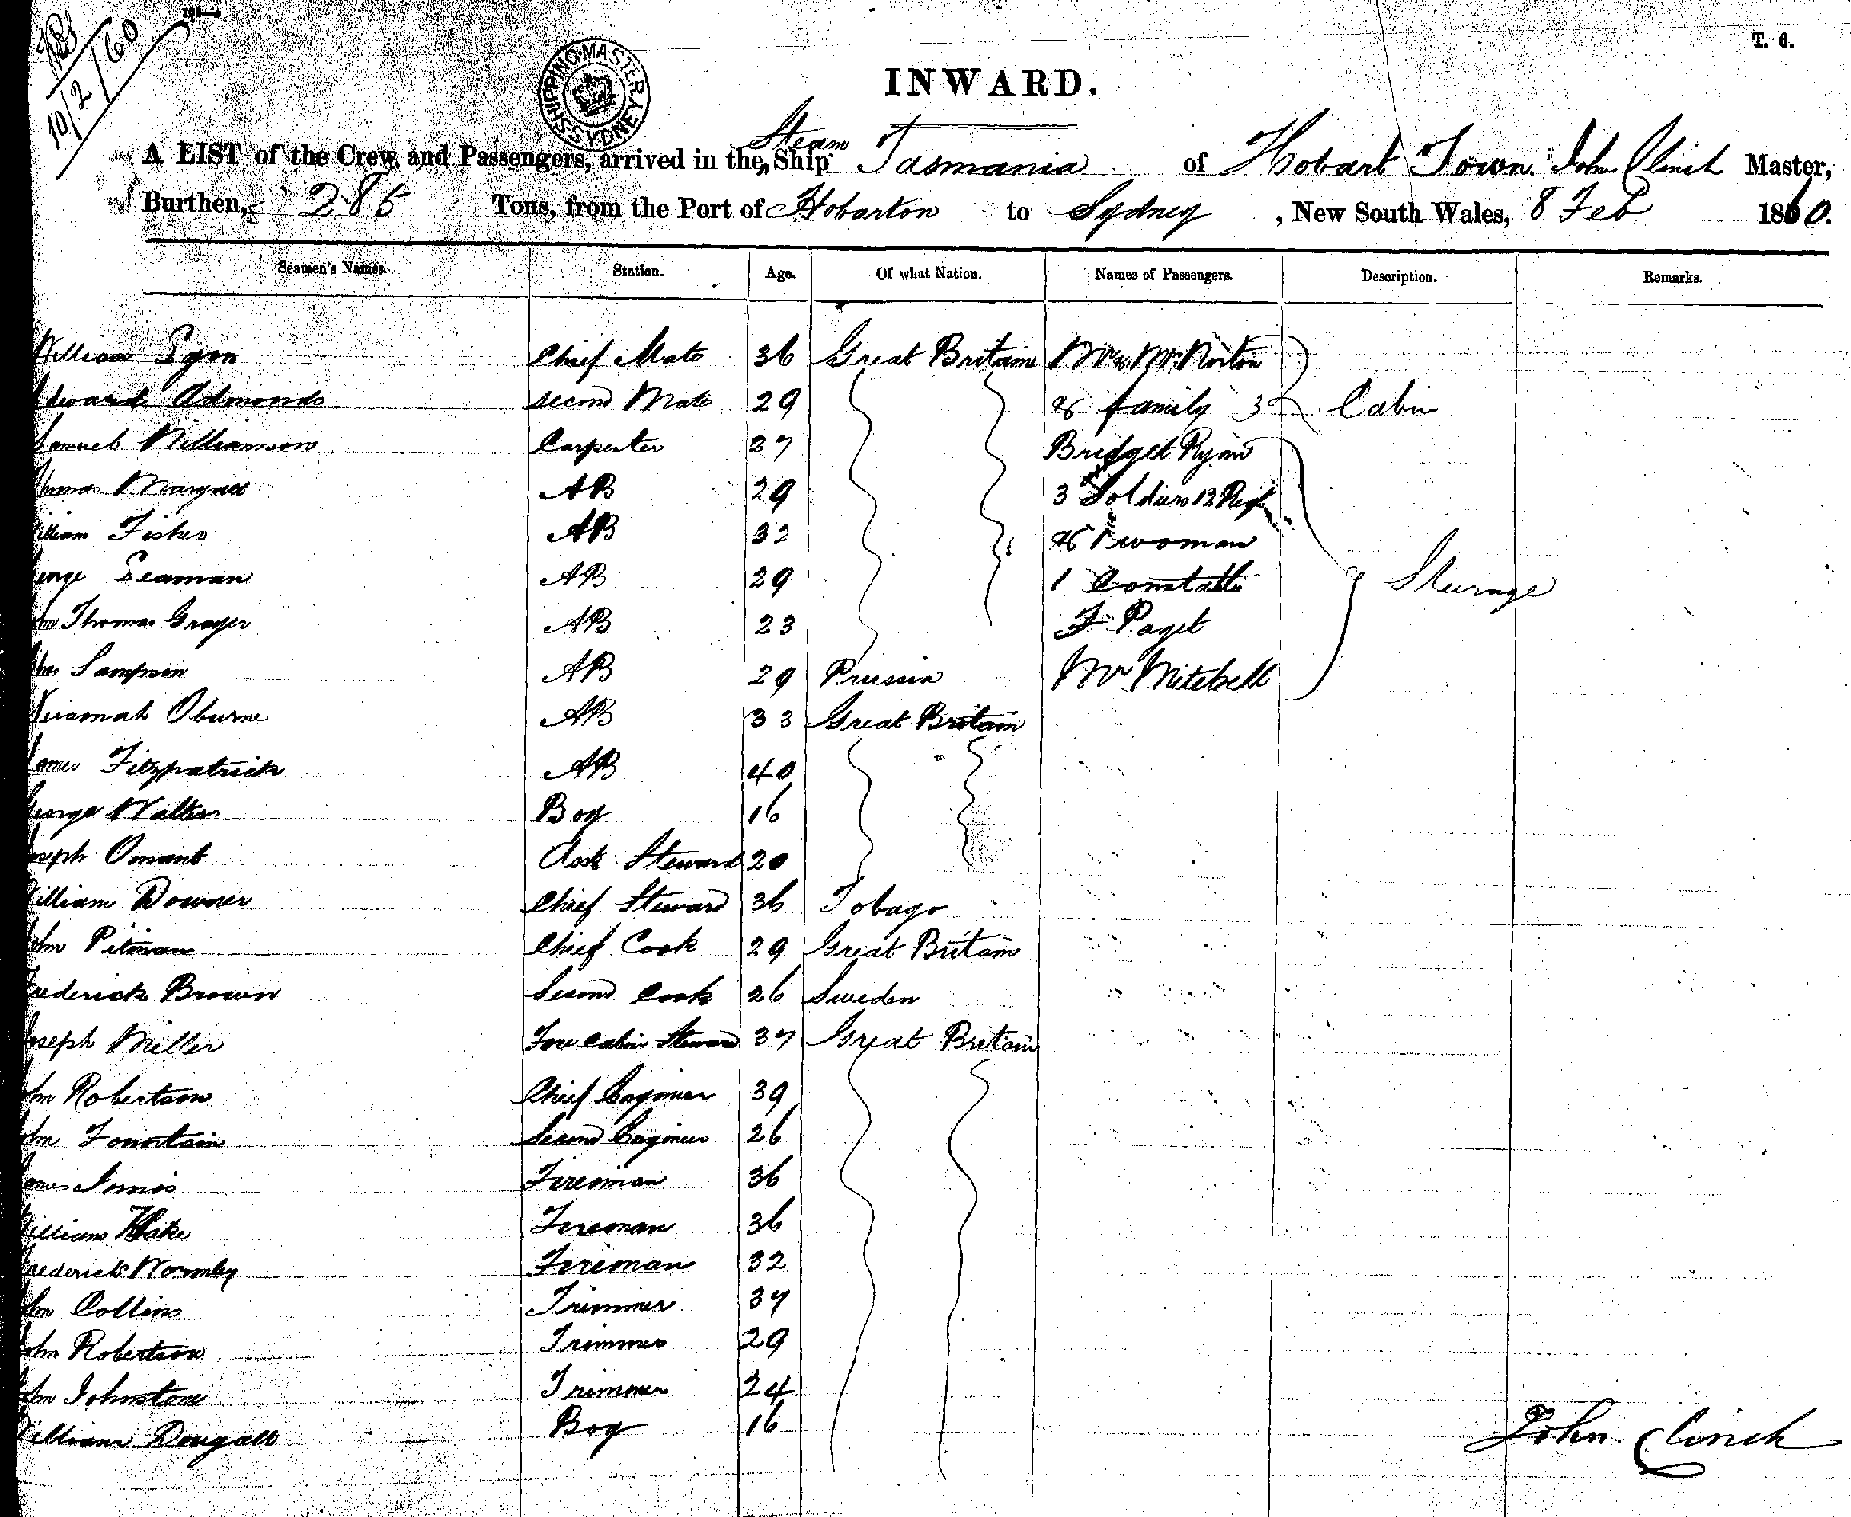 10/2/60
T. 6.
SHIPPING MASTER SYDNEY
INWARD.
A LIST of the Crew and Passengers, arrived in the Steam Ship Tasmania of Hobart Town John Clinch Master,
Burthen, 285 Tons, from the Port of Hobarton to Sydney, New South Wales, 8 Feb 1860.
Seamen's Names. Station. Age. Of what Nation. Names of Passengers. Description. Remarks.
William Chief Mate 36 Great Britain Norton
Edward Admonds second Mate 29 & family 3 Cabin
Samuel Williamson Carpenter 27 Bridget Ryan
AB 29 3 Soldiers 12 Reg
William Fisher AB 32 & 1 woman
George Seaman AB 29 1 Constable Steerage
Thomas Grayer AB 23 F Paget
Sampson AB 29 Prussia Mr Mitchell
Oburne AB 33 Great Britain
James Fitzpatrick AB 40
George Walter Boy 16
Joseph Omant Asst Steward 20
William Downer Chief Steward 36 Tobago
John Pitman Chief Cook 29 Great Britain
Frederick Brown Second Cook 26 Sweden
Joseph Miller Fore Cabin Steward 37 Great Britain
John Robertson Chief Engineer 39
John Fountain Second Engineer 26
James Innis Fireman 36
William Fireman 36
Frederick Wormby Fireman 32
John Collins Trimmer 37
John Robertson Trimmer 29
John Johnstone Trimmer 24
William Dougall Boy 16
John Clinch